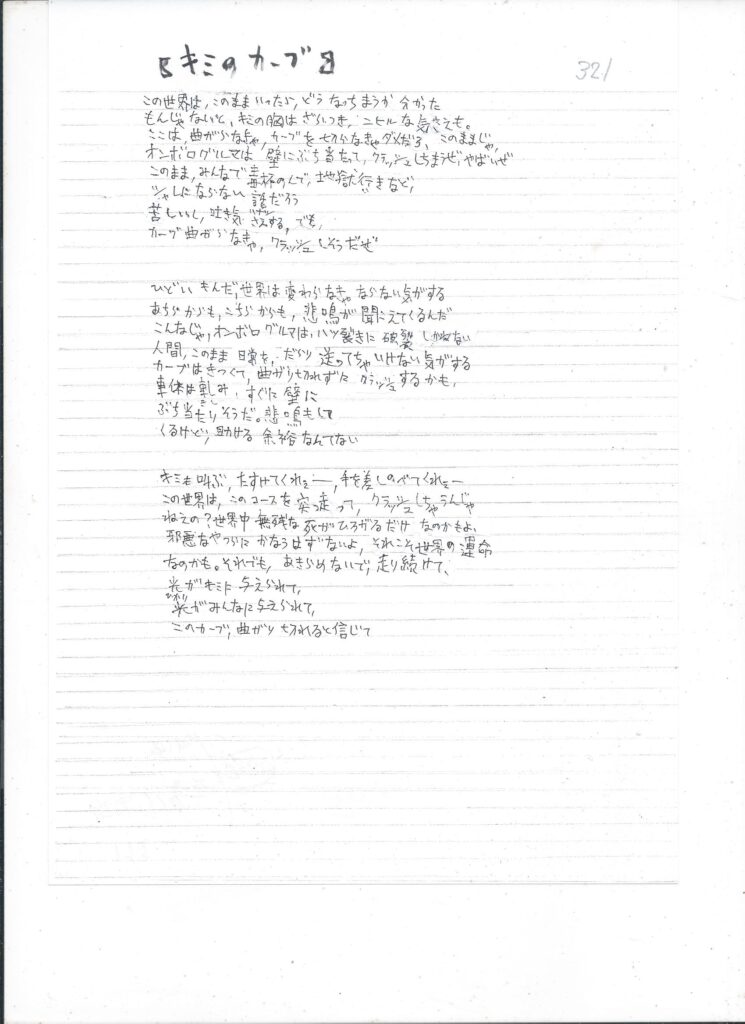 『キミのカーブ』
321
この世界は、このままいったら、どうなっちまうか分かった
もんじゃないと、キミの胸はざらつき、ニヒルな気さえも。
ここは、曲がらなきゃ、カーブを切らなきゃダメだろ、このままじゃ、
オンボログルマは壁にぶち当たって、クラッシュしちまうぜ、やばいぜ
このまま、みんなで毒杯のんで、地獄行きなど、
シャレにならない話だろう
苦しいし、吐き気さえする、でも、
カーブ曲がらなきゃ、クラッシュしそうだぜ
ひどいもんだ、世界は変わらなきゃならない気がする
あちらからも、こちらからも、悲鳴が聞こえてくるんだ
こんなじゃ、オンボログルマは、ハツ裂きに破裂しかねない
人間、このまま日常を、だらり送ってちゃいけない気がする
カーブはきつくて、曲がり切れずにクラッシュするかも、
車体は軋み、すぐに壁に
ぶち当たりそうだ。悲鳴もして
くるけど、助ける余裕なんてない
キミも叫ぶ、たすけてくれェー、手を差しのべてくれェー
この世界は、このコースを突っ走って、クラッシュしちゃうんじゃ
ねえの?世界中無残な死がひろがるだけなのかもよ、
邪悪なやつらにかなうはずないよ、それこそ世界の運命
なのかも。それでも、あきらめないで、走り続けて、
光がキミに与えられて、
光がみんなに与えられて、
このカーブ、曲がり切れると信じて